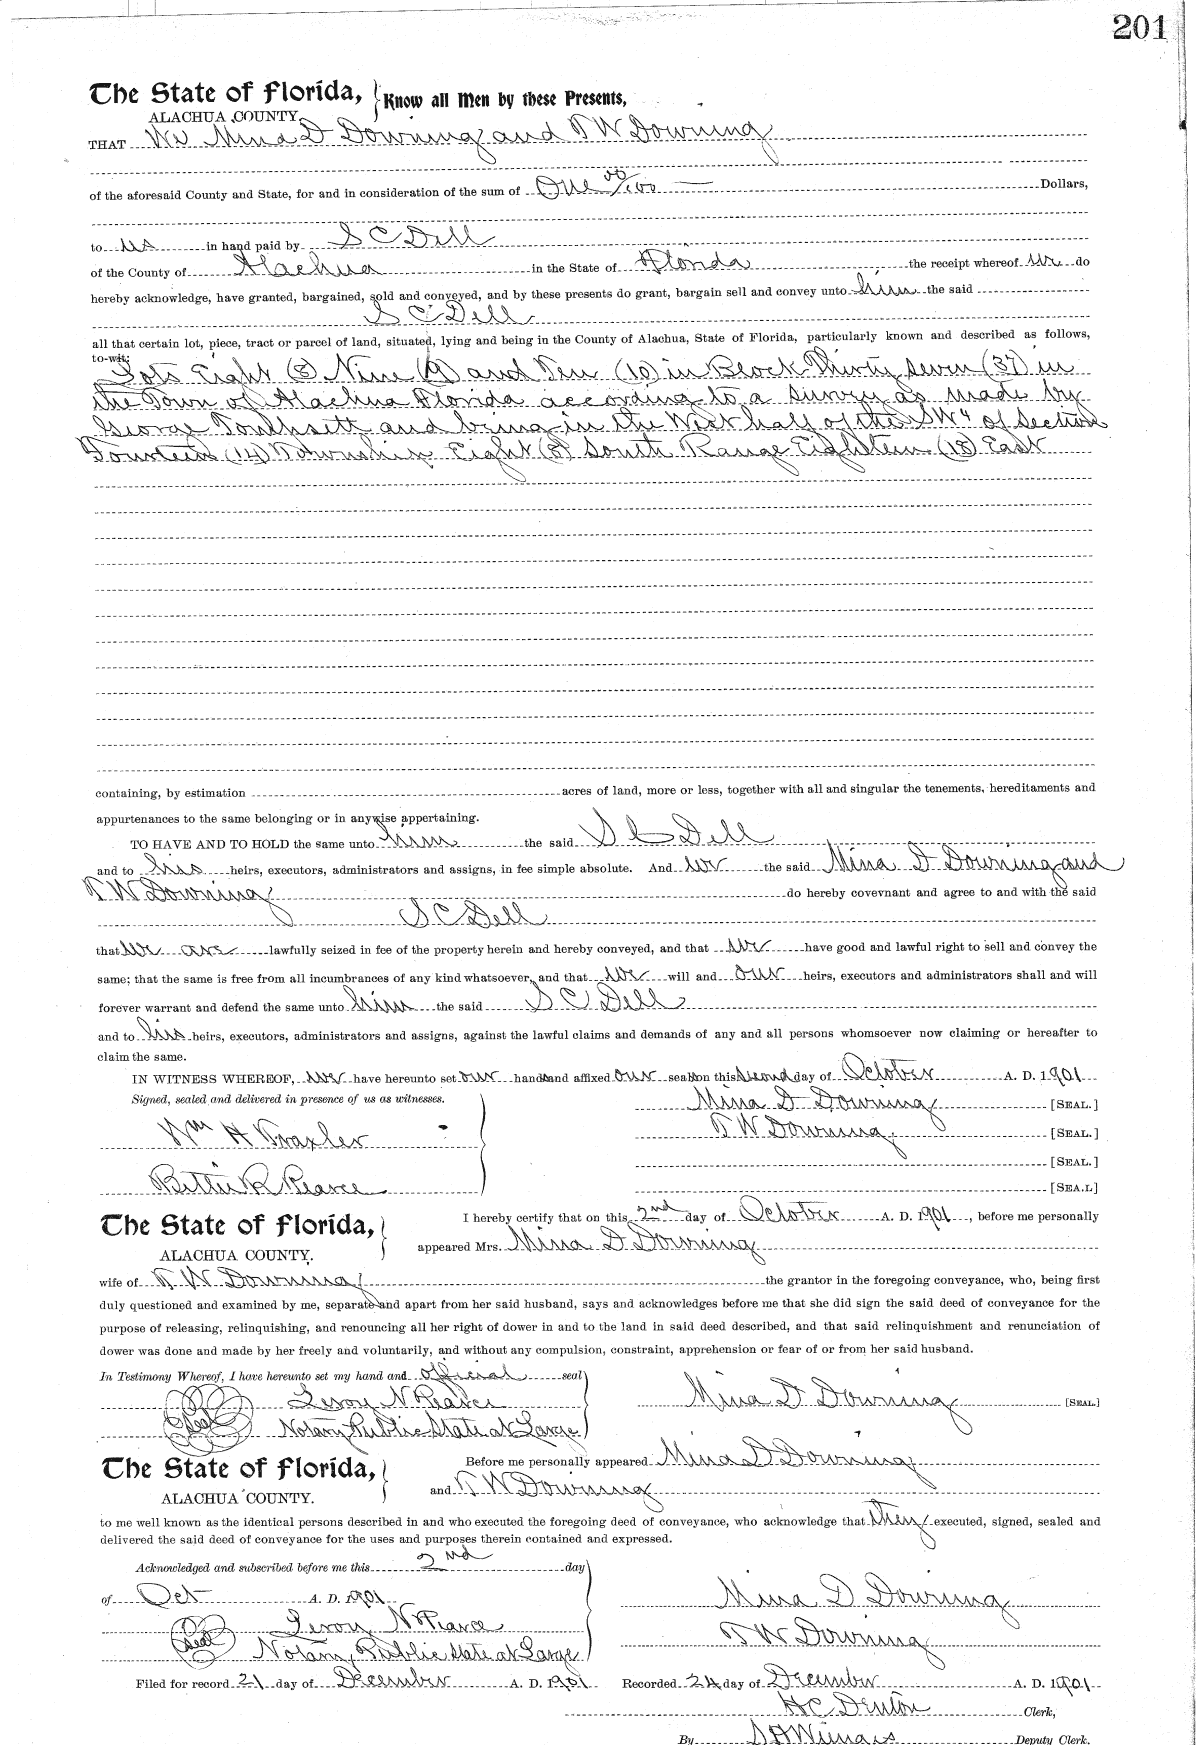 201
The State of Florida, Know all Men by these Presents,
ALACHUA COUNTY.
THAT We Mina D Downing and T W Downing
of the aforesaid County and State, for and in consideration of the sum of One 00/100 Dollars,
to us in hand paid by S C Dell
of the County of Alachua in the State of Florida the receipt whereof we do
hereby acknowledge, have granted, bargained, sold and conveyed, and by these presents do grant, bargain sell and convey unto him the said
S C Dell
all that certain lot, piece, tract or parcel of land, situated, lying and being in the County of Alachua, State of Florida, particularly known and described as follows,
to-wit:
Lots Eight (8) Nine (9) and Ten (10) in Block Thirty seven (37) in
the Town of Alachua Florida according to a survey as made by
George and being in the West half of the SW4 of Section
Fourteen (14) Township Eight (8) South Range Eighteen (18) East
containing, by estimation acres of land, more or less, together with all and singular the tenements, hereditaments and
appurtenances to the same belonging or in anywise appertaining.
TO HAVE AND TO HOLD the same unto him the said S C Dell
and to his heirs, executors, administrators and assigns, in fee simple absolute. And we the said Mina D Downing and
T W Downing do hereby covevnant and agree to and with the said
S C Dell
that we are lawfully seized in fee of the property herein and hereby conveyed, and that we have good and lawful right to sell and convey the
same; that the same is free from all incumbrances of any kind whatsoever, and that we will and our heirs, executors and administrators shall and will
forever warrant and defend the same unto him the said S C Dell
and to his heirs, executors, administrators and assigns, against the lawful claims and demands of any and all persons whomsoever now claiming or hereafter to
claim the same.
IN WITNESS WHEREOF, we have hereunto set our hands and affixed our seals on this second day of October A. D. 1901
Signed, sealed and delivered in presence of us as witnesses. Mina D Downing [SEAL.]
Wm H Traxler T W Downing [SEAL.]
[SEAL.]
Bettie R Pearce [SEA.L]
The State of Florida, I hereby certify that on this 2nd day of October A. D. 1901, before me personally
ALACHUA COUNTY. appeared Mrs. Mina D Downing
wife of T W Downing the grantor in the foregoing conveyance, who, being first
duly questioned and examined by me, separate and apart from her said husband, says and acknowledges before me that she did sign the said deed of conveyance for the
purpose of releasing, relinquishing, and renouncing all her right of dower in and to the land in said deed described, and that said relinquishment and renunciation of
dower was done and made by her freely and voluntarily, and without any compulsion, constraint, apprehension or fear of or from her said husband.
In Testimony Whereof, I have hereunto set my hand and official seal
Leroy N Pearce Mina D Downing [SEAL]
Seal Notary Public State at Large
The State of Florida, Before me personally appeared Mina D Downing
ALACHUA COUNTY. and T W Downing
to me well known as the identical persons described in and who executed the foregoing deed of conveyance, who acknowledge that they executed, signed, sealed and
delivered the said deed of conveyance for the uses and purposes therein contained and expressed.
Acknowledged and subscribed before me this 2nd day
of Oct A. D. 1901 Mina D Downing
Leroy N Pearce T W Downing
Seal Notary Public State at Large
Filed for record 21 day of December A. D. 1901 Recorded 24 day of December A. D. 1901
H C Denton Clerk,
By Deputy Clerk.